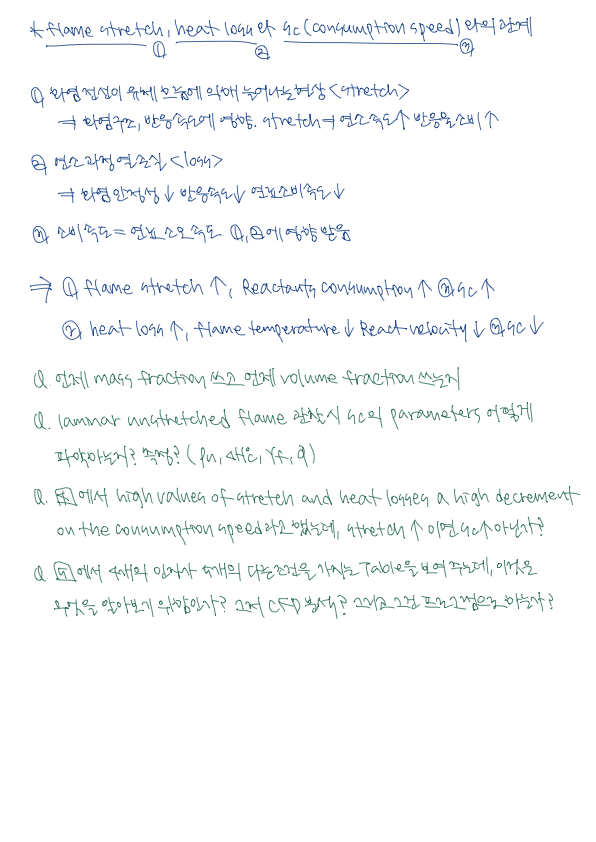 * flame stretch, heat loss 와 sc (consumption speed) 와의 관계
① ② ③
① 화염 전선이 유체 흐름에 의해 늘어나는 현상 <stretch>
⇒ 화염구조, 반응속도에 영향. stretch ⇒ 연소속도↑ 반응물소비↑
② 연소과정 열손실 <loss>
⇒ 화염안정성↓ 반응속도↓ 연료소비속도↓
③ 소비속도 = 연료 소모 속도 ①,②에 영향 받음
⇒ ① flame stretch ↑, Reactants consumption ↑ ③ sc ↑
② heat loss ↑, flame temperature ↓ React velocity ↓ ③ sc ↓
Q. 언제 mass fraction 쓰고 언제 volume fraction 쓰는지
Q. laminar unstretched flame 관찰시 sc의 parameters 어떻게
파악하는지? 측정? (ρu, ΔHc, Yf, q)
Q. 에서 high values of stretch and heat losses a high decrement
on the consumption speed라고 했는데, stretch ↑ 이면 sc↑ 아닌가?
Q 에서 4개의 인자가 4개의 다른조건을 가지는 Table을 보여 주는데, 이것은
무엇을 알아보기 위함인가? 그저 CFD 분석? 그리고 그건 프로그램으로 하는가?